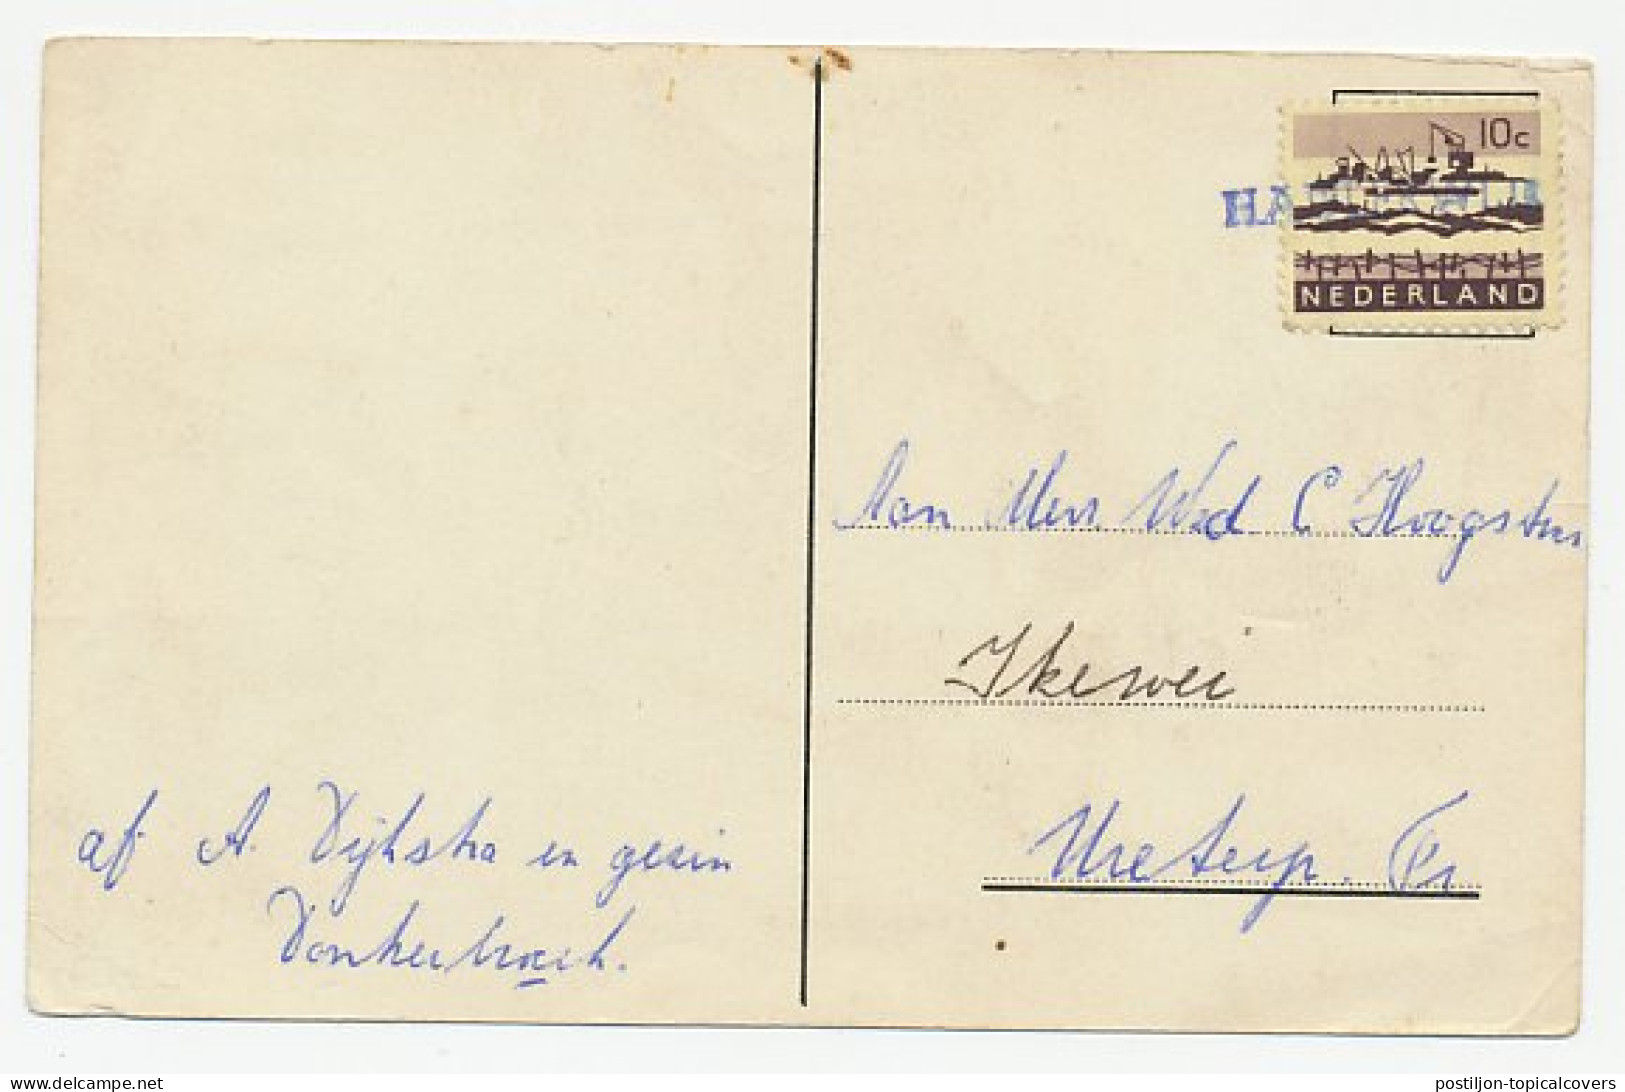 10c
HA
NEDERLAND
Aan Mevr Wed C Hoogsteen
Ikewei
Ureterp. Fr
af. A. Dijkstra en gezin
Donkerbroek.
postiljon-topicalcovers